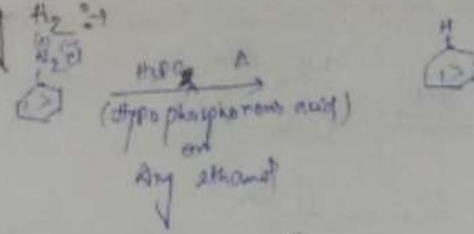 N2Cl
H3PO2 Δ
H
(Hypophosphorous acid)
or
Dry ethanol